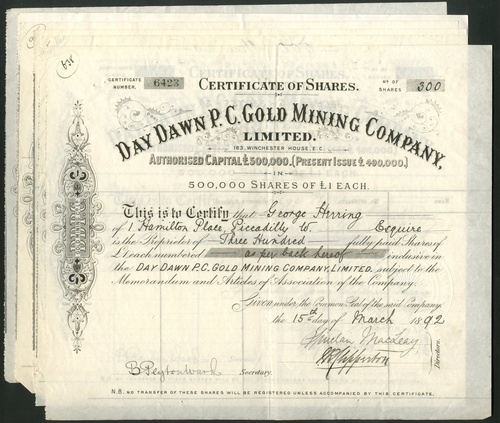 CERTIFICATE NUMBER. 6423
CERTIFICATE OF SHARES.
No OF SHARES 300
DAY DAWN P.C. GOLD MINING COMPANY,
LIMITED.
163, WINCHESTER HOUSE, E.C.
AUTHORISED CAPITAL £500,000, (PRESENT ISSUE £480,000.)
IN
500,000 SHARES OF £1 EACH.
This is to Certify that George Herring
of 1 Hamilton Place, Piccadilly W. Esquire
is the Proprietor of Three Hundred fully paid Shares of
£1 each numbered as per back hereof inclusive in
the DAY DAWN P.C. GOLD MINING COMPANY, LIMITED, subject to the
Memorandum and Articles of Association of the Company.
Given under the Common Seal of the said Company,
the 15th day of March 1892
Directors.
B Peyton Ward Secretary.
N.B. NO TRANSFER OF THESE SHARES WILL BE REGISTERED UNLESS ACCOMPANIED BY THIS CERTIFICATE.